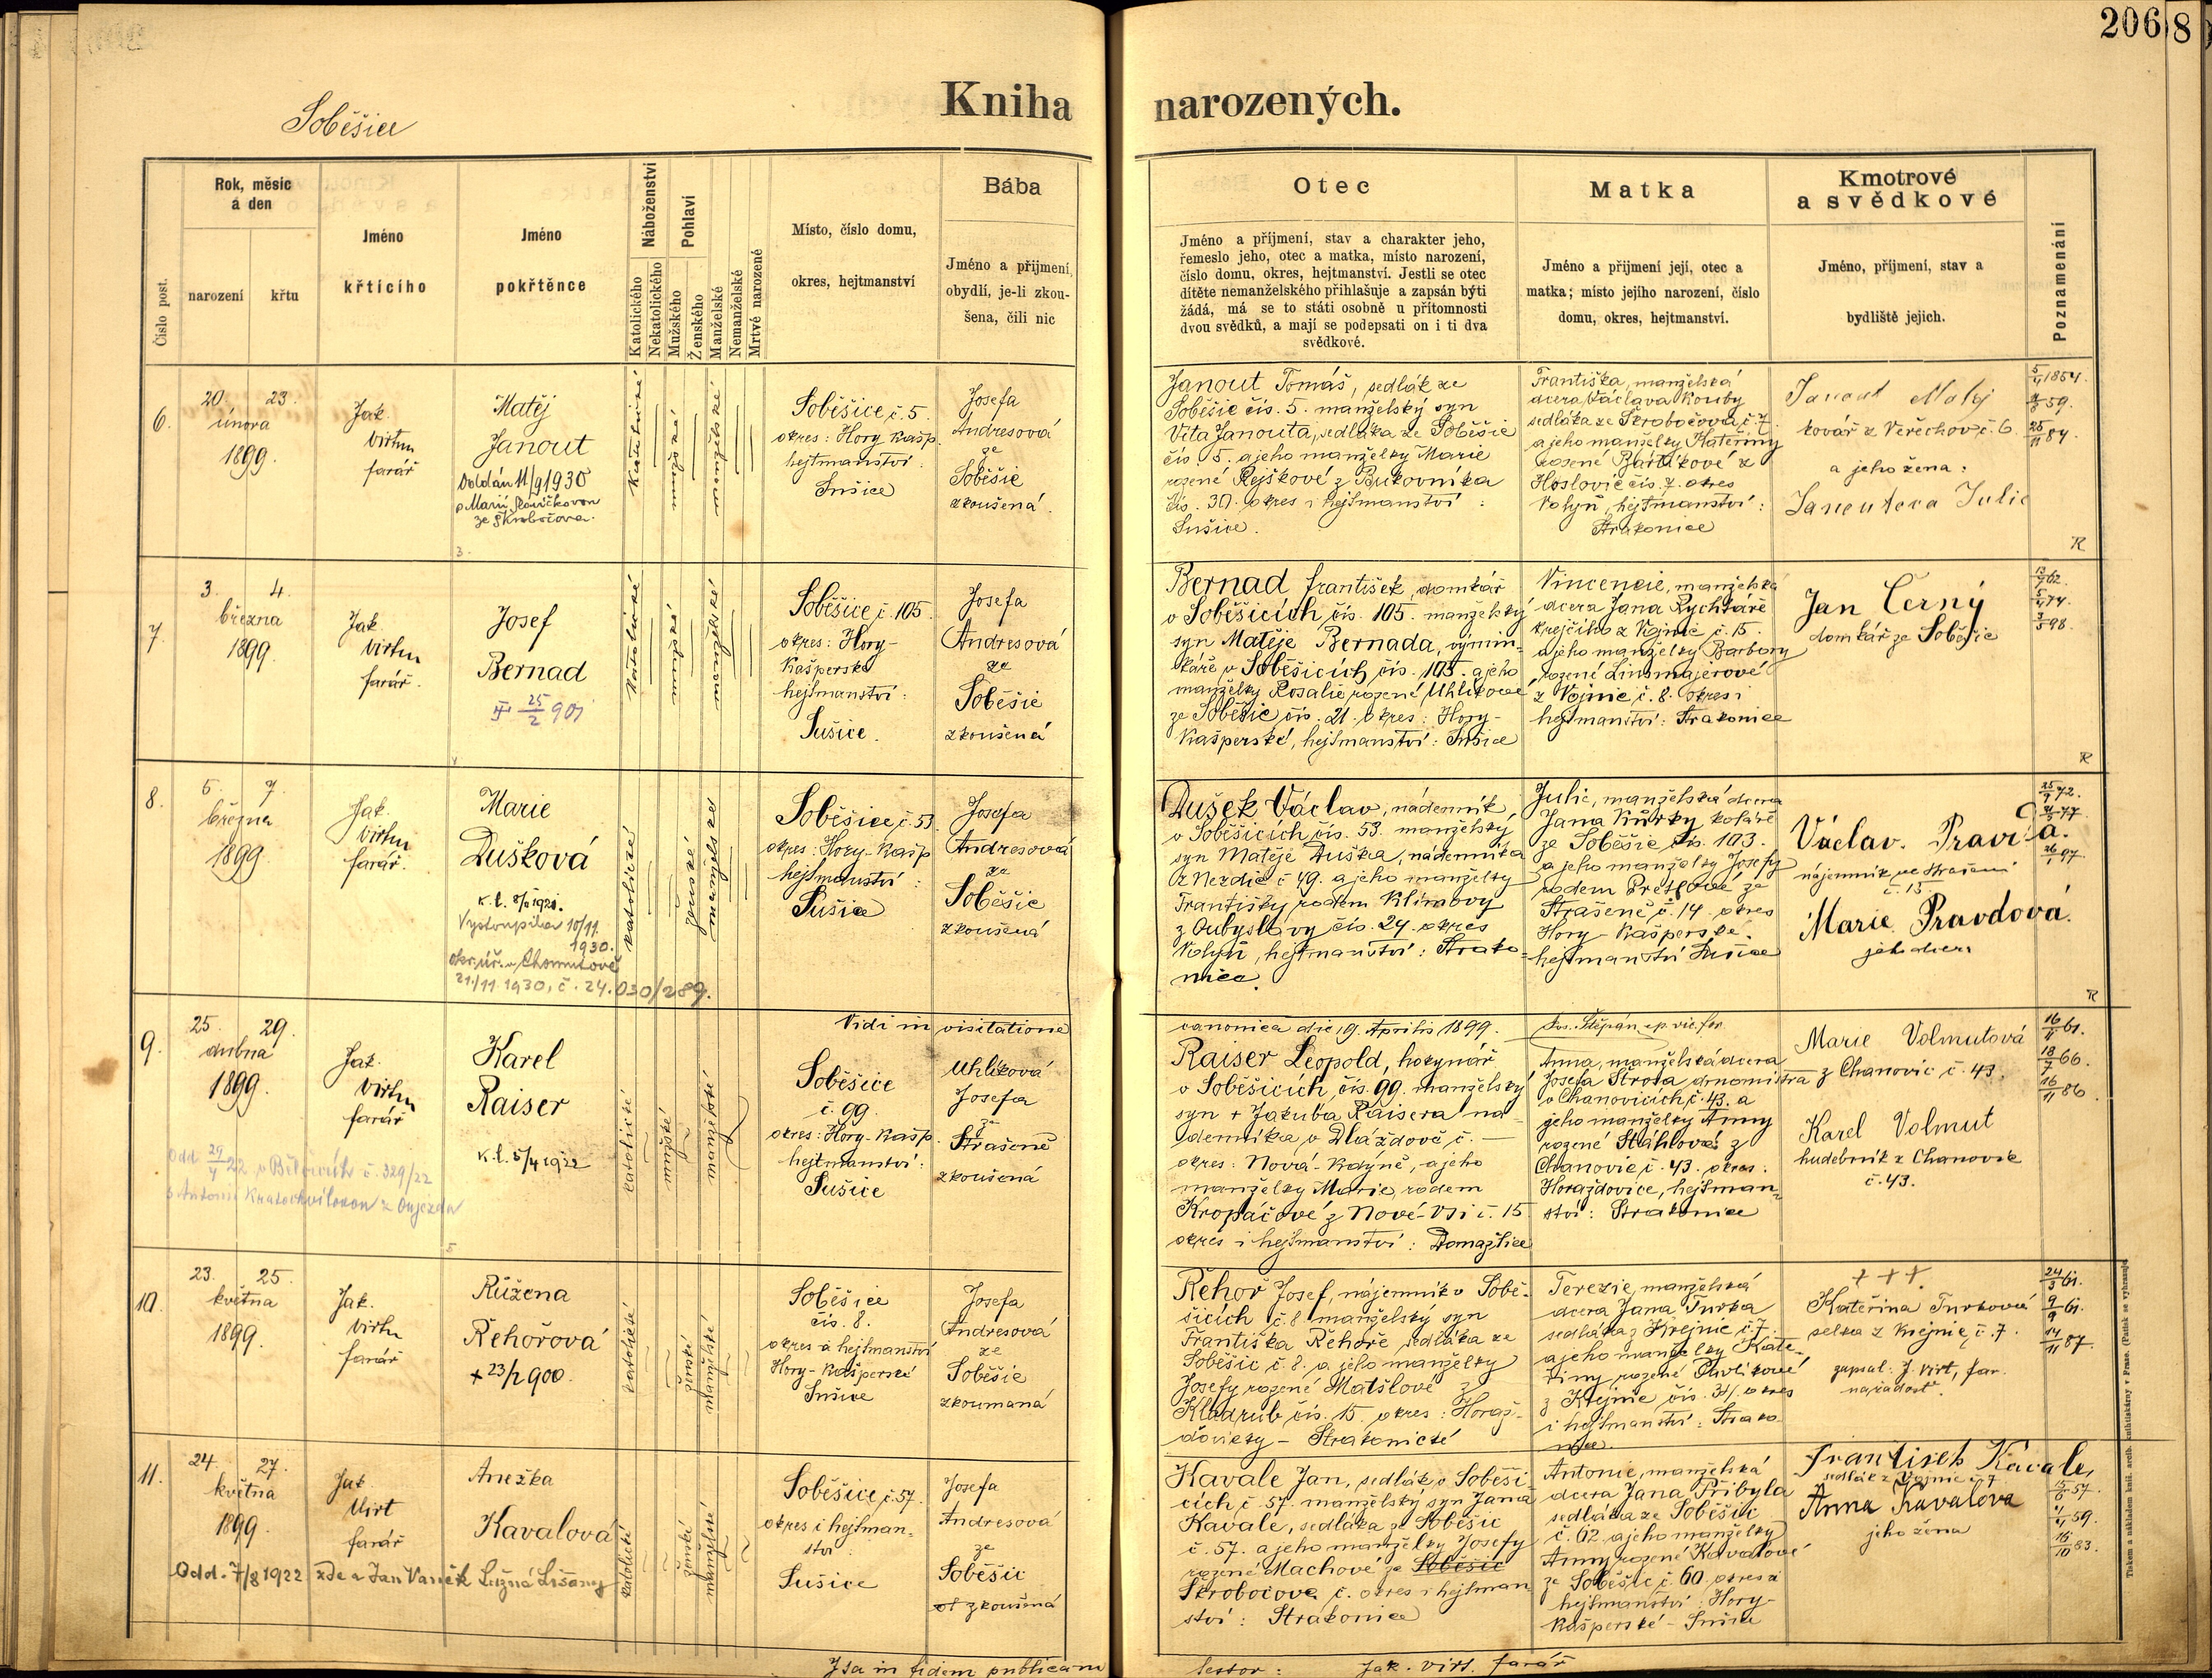 206
8
Soběšice
Kniha narozených.
Číslo post.
Rok, měsíc
á den
narození
křtu
Jméno
křtícího
Jméno
pokřtěnce
Náboženství
Katolického
Nekatolického
Pohlaví
Mužského
Ženského
Manželské
Nemanželské
Mrtvé narozené
Místo, číslo domu,
okres, hejtmanství
Bába
Jméno a příjmení,
obydlí, je-li zkou-
šena, čili nic
Otec
Jméno a příjmení, stav a charakter jeho,
řemeslo jeho, otec a matka, místo narození,
číslo domu, okres, hejtmanství. Jestli se otec
dítěte nemanželského přihlašuje a zapsán býti
žádá, má se to státi osobně u přítomnosti
dvou svědků, a mají se podepsati on i ti dva
svědkové.
Matka
Jméno a příjmení její, otec a
matka; místo jejího narození, číslo
domu, okres, hejtmanství.
Kmotrové
a svědkové
Jméno, příjmení, stav a
bydliště jejich.
Poznamenání
6.
20. 23.
února
1899.
Jak.
Virt
farář
Matěj
Janout
Oddán 11/9 1930
s Marií
ze Škrobočova.
katolické
mužské
manželské
Soběšice, č. 5.
okres: Hory Kašp.
hejtmanství:
Sušice
Josefa
Andresová
ze
Soběšic
zkoušená.
Janout Tomáš, sedlák ze
Soběšic čís. 5. manželský syn
Víta Janouta, sedláka ze Soběšic
čís. 5. a jeho manželky Marie
rozené Rejškové z Bukovníka
čís. 30. okres i hejtmanství:
Sušice.
Františka, manželská
dcera Václava Kouby
sedláka ze Škrobočova, č. 7.
a jeho manželky Kateřiny
rozené Bártíkové z
Hoslovic čís. 7. okres
Volyň, hejtmanství:
Strakonice
Janout Matěj
kovář z Věřechov č. 6.
a jeho žena:
Janoutova Julie
5/4 1854.
59.
25/11 84.
R
7.
3. 4.
března
1899.
Jak.
Virt
farář.
Josef
Bernad
25/2 901
katolické
mužské
manželské
Soběšice č. 105.
okres: Hory-
Kašperské
hejtmanství:
Sušice.
Josefa
Andresová
ze
Soběšic
zkoušená
Bernad František, domkář
v Soběšicích čís. 105. manželský
syn Matěje Bernada, výmin-
káře v Soběšicích čís. 105. a jeho
manželky Rosalie rozené Uhlíkové
ze Soběšic čís. 21. okres: Hory-
Kašperské, hejtmanství: Sušice
Vincencie, manželská
dcera Jana Rychtáře
krejčího z Vojnic č. 15.
a jeho manželky Barbory
rozené Linsmajerové
z Vojnic č. 8. okres i
hejtmanství: Strakonice
Jan Černý
domkář ze Soběšic
62.
74.
98.
R
8.
5. 7.
března
1899.
Jak.
Virt
farář.
Marie
Dušková
Vystoupila 10/11.
1930.
okr. úř. v Chomutově
21./11. 1930, č. 24.030/289.
katolické
ženské
manželské
Soběšice, č. 53.
okres: Hory-Kašp.
hejtmanství:
Sušice
Josefa
Andresová
ze
Soběšic
zkoušená
Dušek Václav, nádenník
v Soběšicích čís. 53. manželský
syn Matěje Duška, nádenníka
z Nezdic č. 49. a jeho manželky
Františky rodem Klímovy
z Oubyslavy čís. 24. okres
Volyň, hejtmanství: Strako-
nice.
Julie, manželská dcera
Jana Kůrky koláře
ze Soběšic čís. 103.
a jeho manželky Josefy
rodem Pretlové ze
Strašené č. 14. okres
Hory-Kašperské.
hejtmanství Sušice
Václav Pravda.
nájemník ve Strašení
č. 15
Marie Pravdová.
jeho dcera
25/9 72.
77
26/1 97.
R
Vidi in visitatione canonica die 19. Aprilis 1899.
Jos. Štěpán, ep. vic. for.
9.
25. 29.
dubna
1899.
Jak.
Virt
farář
Odd 29/4 22 v Bělčicích č. 329/22
s Antonií Kratochvílovou z Oujezda
Karel
Raiser
k. l. 5/4 1922
katolické
mužské
manželské
Soběšice
č. 99.
okres: Hory-Kašp.
hejtmanství:
Sušice
Uhlíková
Josefa
ze
Strašené
zkoušená
Raiser Leopold, hokynář
v Soběšicích, čís. 99. manželský
syn + Jakuba Raisera ná-
denníka v Dlážďově č. —
okres: Nová-Kdýně, a jeho
manželky Marie, rodem
Kropáčové z Nové-Vsi č. 15.
okres i hejtmanství: Domažlice
Anna, manželská dcera
Josefa Štrosa drnomistra
v Chanovicích, č. 43. a
jeho manželky Anny
rozené Stáhlové z
Chanovic č. 43. okres:
Horažďovice, hejtman-
ství: Strakonice
Marie Volmutová
z Chanovic č. 43.
Karel Volmut
hudebník z Chanovic
č. 43.
16/11 61.
18/7 66.
16/11 86
10.
23. 25.
května
1899.
Jak.
Virt
farář
Růžena
Řehořová
+ 23/2 900.
katolické
ženské
manželské
Soběšice
čís. 8.
okres a hejtmanství
Hory-Kašperské
Sušice
Josefa
Andresová
ze
Soběšic
zkoumaná
Řehoř Josef, nájemník v Sobě-
šicích č. 8. manželský syn
Františka Řehoře, sedláka ze
Soběšic č. 8. a jeho manželky
Josefy rozené Matšlové z
Kladrub čís. 15. okres: Horaž-
ďovický - Strakonické
Terezie, manželská
dcera Jana Turka
sedláka z Krejnic č. 7.
a jeho manželky Kate-
řiny rozené Pavlíkové
z Krejnic čís. 31. okres
i hejtmanství: Strako-
nice.
+++
Kateřina Turková
selka z Krejnic, č. 7.
zapsal: J. Virt, far.
na žádost.
24/3 61.
9/9 61.
14/11 87.
11.
24. 27.
května
1899.
Jak
Virt
farář
Anežka
Kavalová
Odd. 7/8 1922 zde s Jan Vaněk Lužná Lišany
katolické
ženské
manželské
Soběšice, č. 57.
okres i hejtman-
ství:
Sušice
Josefa
Andresová
ze
Soběšic
zkoušená
Kavale Jan, sedlák v Soběši-
cích č. 57. manželský syn Jana
Kavale, sedláka ze Soběšic
č. 57. a jeho manželky Josefy
rozené Machové ze Soběšic
Škrobočova č. okres i hejtman-
ství: Strakonice
Antonie, manželská
dcera Jana Přibyla
sedláka ze Soběšic
č. 62. a jeho manželky
Anny rozené Kavalové
ze Soběšic č. 60. okres a
hejtmanství: Hory-
Kašperské - Sušice
František Kavale,
sedlák z Vojnic č. 7
Anna Kavalova
jeho žena
57.
59.
83.
Ita in fidem publicam testor: Jak. Virt. farář
Tiskem a nákladem knih. arcib. knihtiskárny v Praze. (Patisk se vyhrazuje)